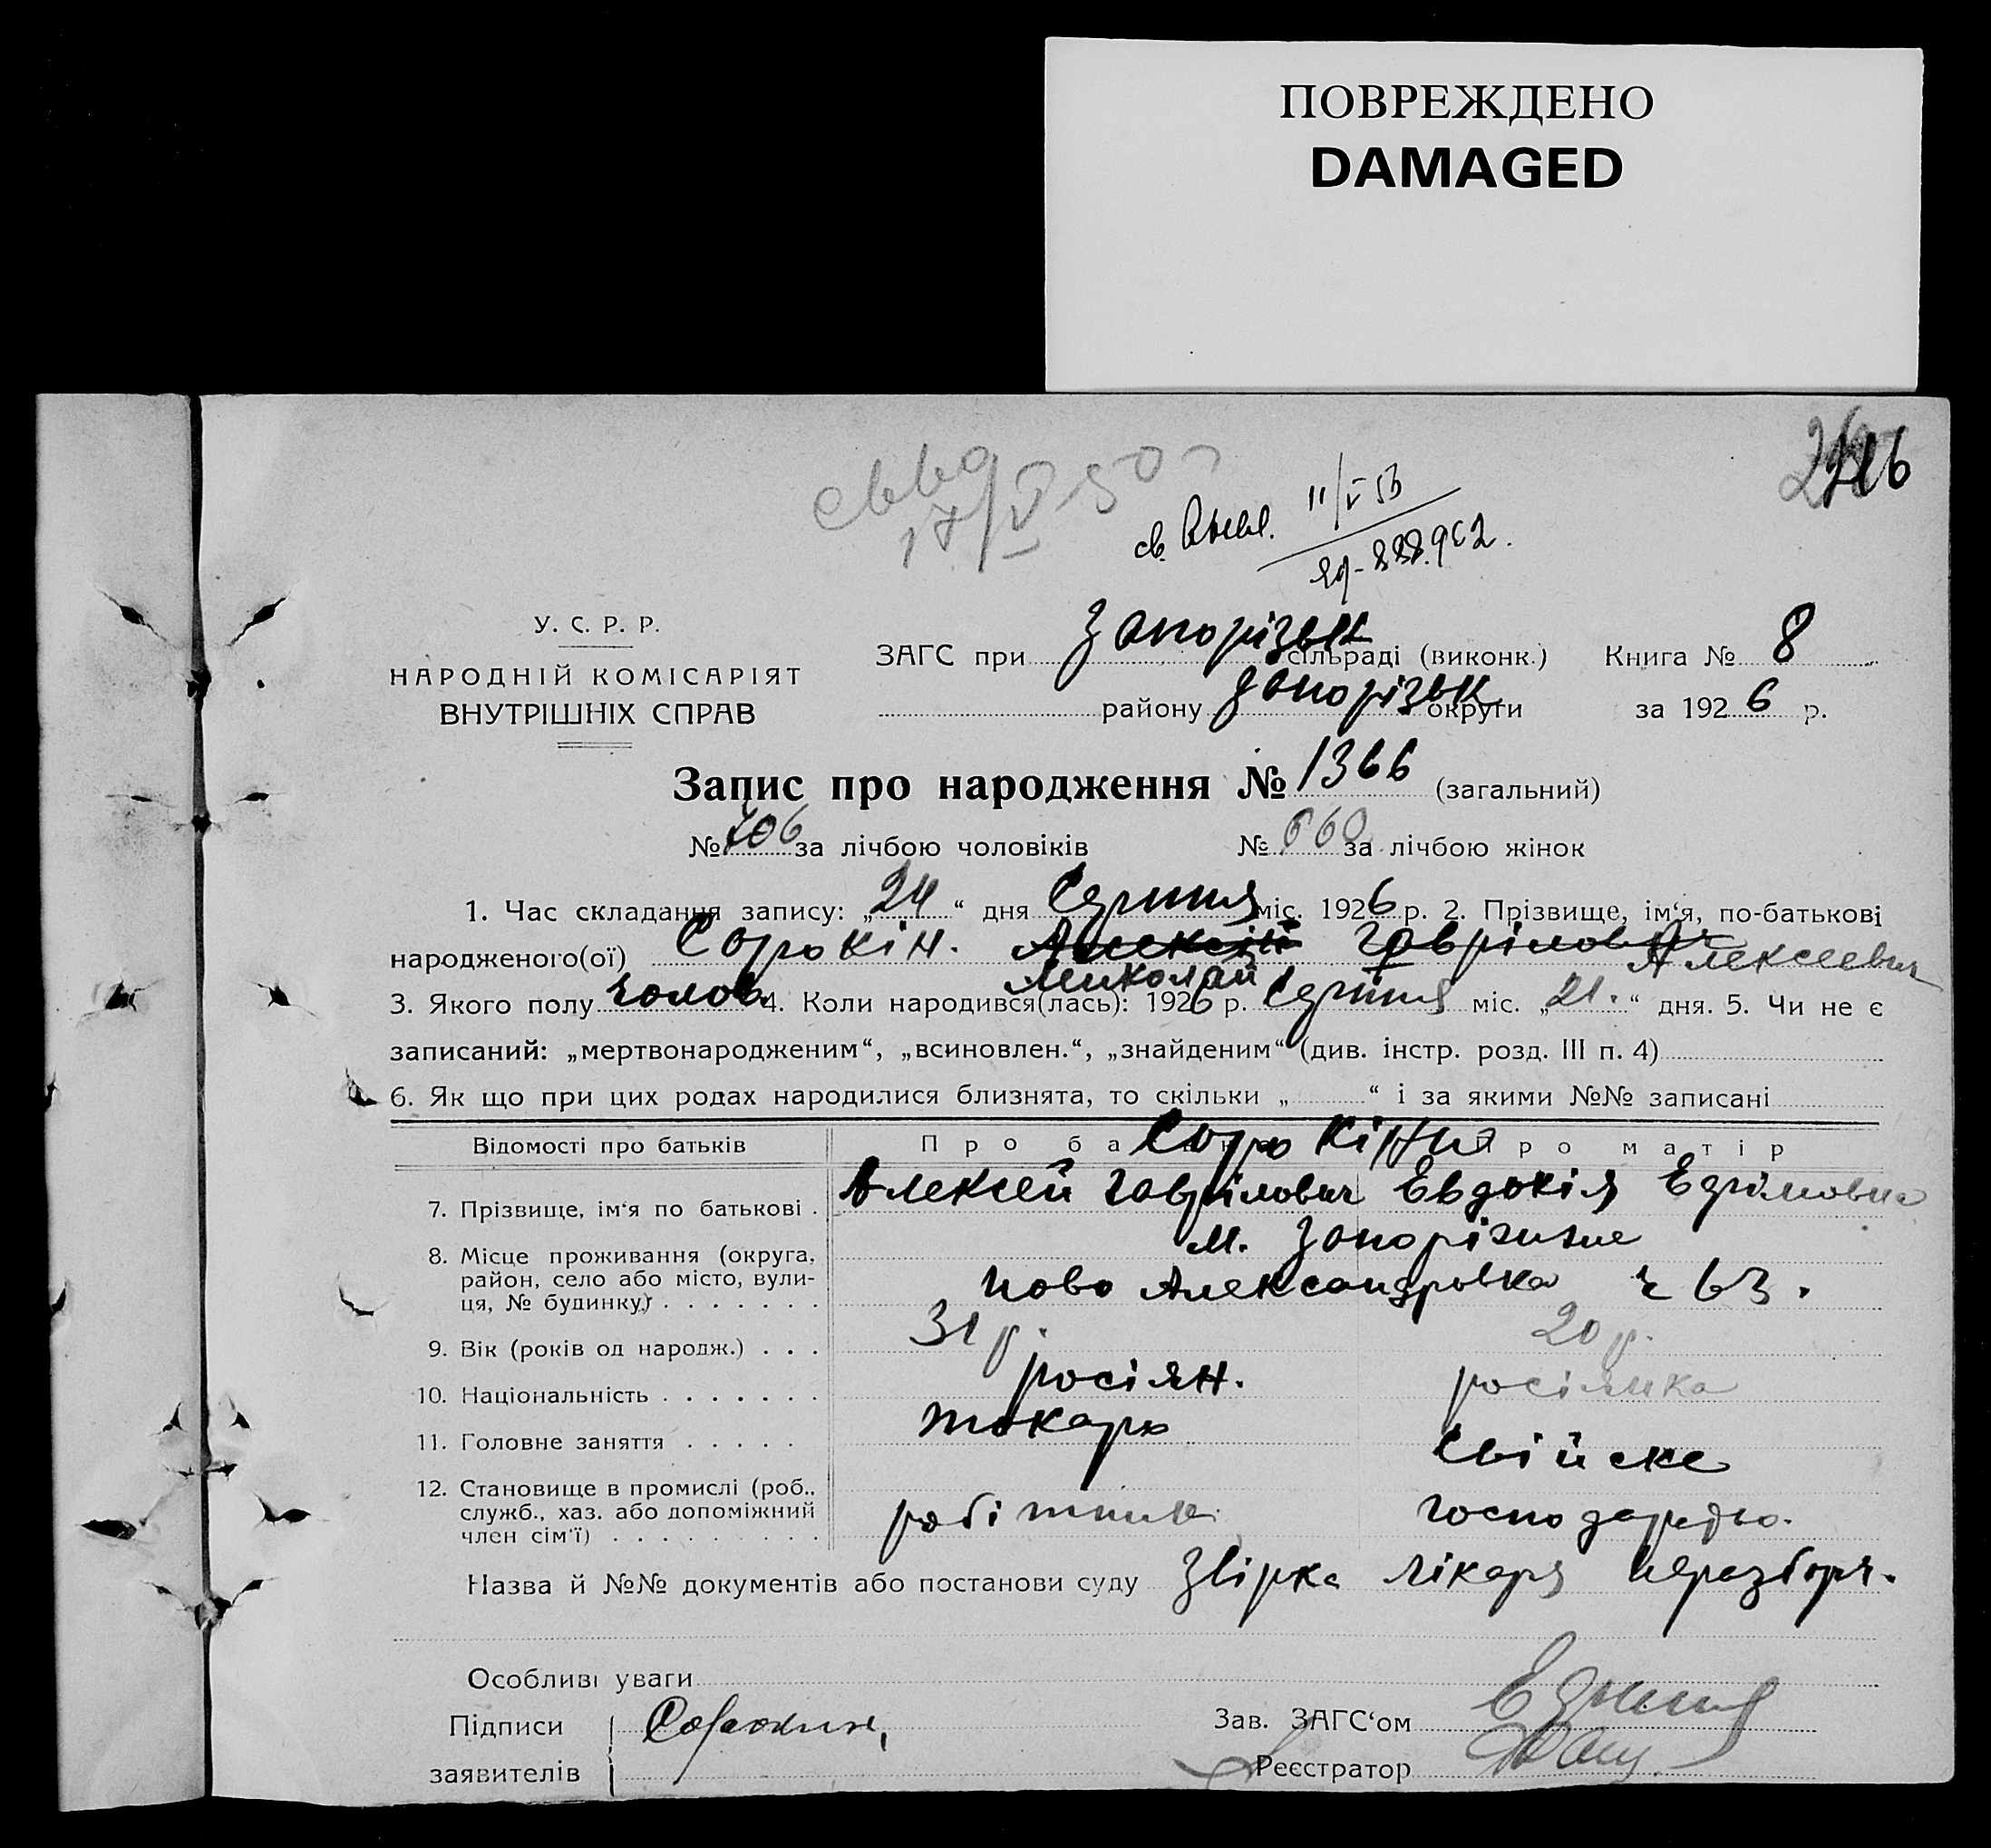 ПОВРЕЖДЕНО
DAMAGED
17/V-50
св. 11/V 53
У. С. Р. Р.
НАРОДНІЙ КОМІСАРІЯТ
ВНУТРІШНІХ СПРАВ
ЗАГС при Запорізьк сільраді (виконк.) Книга № 8
району Запорізьк округи за 1926 р.
Запис про народження № 1366 (загальний)
№ 706 за лічбою чоловіків № 660 за лічбою жінок
1. Час складання запису: „24“ дня Серпня міс. 1926 р. 2. Прізвище, ім‘я, по-батькові
народженого(ої) Сорокін. Алексій Гаврілович Алексеевич
Миколай
3. Якого полу чолов. 4. Коли народився(лась): 1926 р. Серпня міс. „21.“ дня. 5. Чи не є
записаний: „мертвонародженим“, „всиновлен.“, „знайденим“ (див. інстр. розд. III п. 4)
6. Як що при цих родах народилися близнята, то скільки „ “ і за якими №№ записані
Відомості про батьків Про ба Сорокіни про матір
7. Прізвище, ім‘я по батькові . Алексей Гаврілович Евдокія Ефімовна
8. Місце проживання (округа, район, село або місто, вулиця, № будинку) . . . . . . . м. Запоріжжe
Ново Александровка ч 63.
9. Вік (років од народж.) . . . 31 р. 20 р.
10. Національність . . . . . . . росіян. росіянка
11. Головне заняття . . . . . токарь свійске
12. Становище в промислі (роб., служб., хаз. або допоміжний член сім‘ї) . . . . . . . . . робітник господарство.
Назва й №№ документів або постанови суду Звірка лікаря неразборч.
Особливі уваги
Підписи Сорокин,
заявителів
Зав. ЗАГС‘ом
Реєстратор